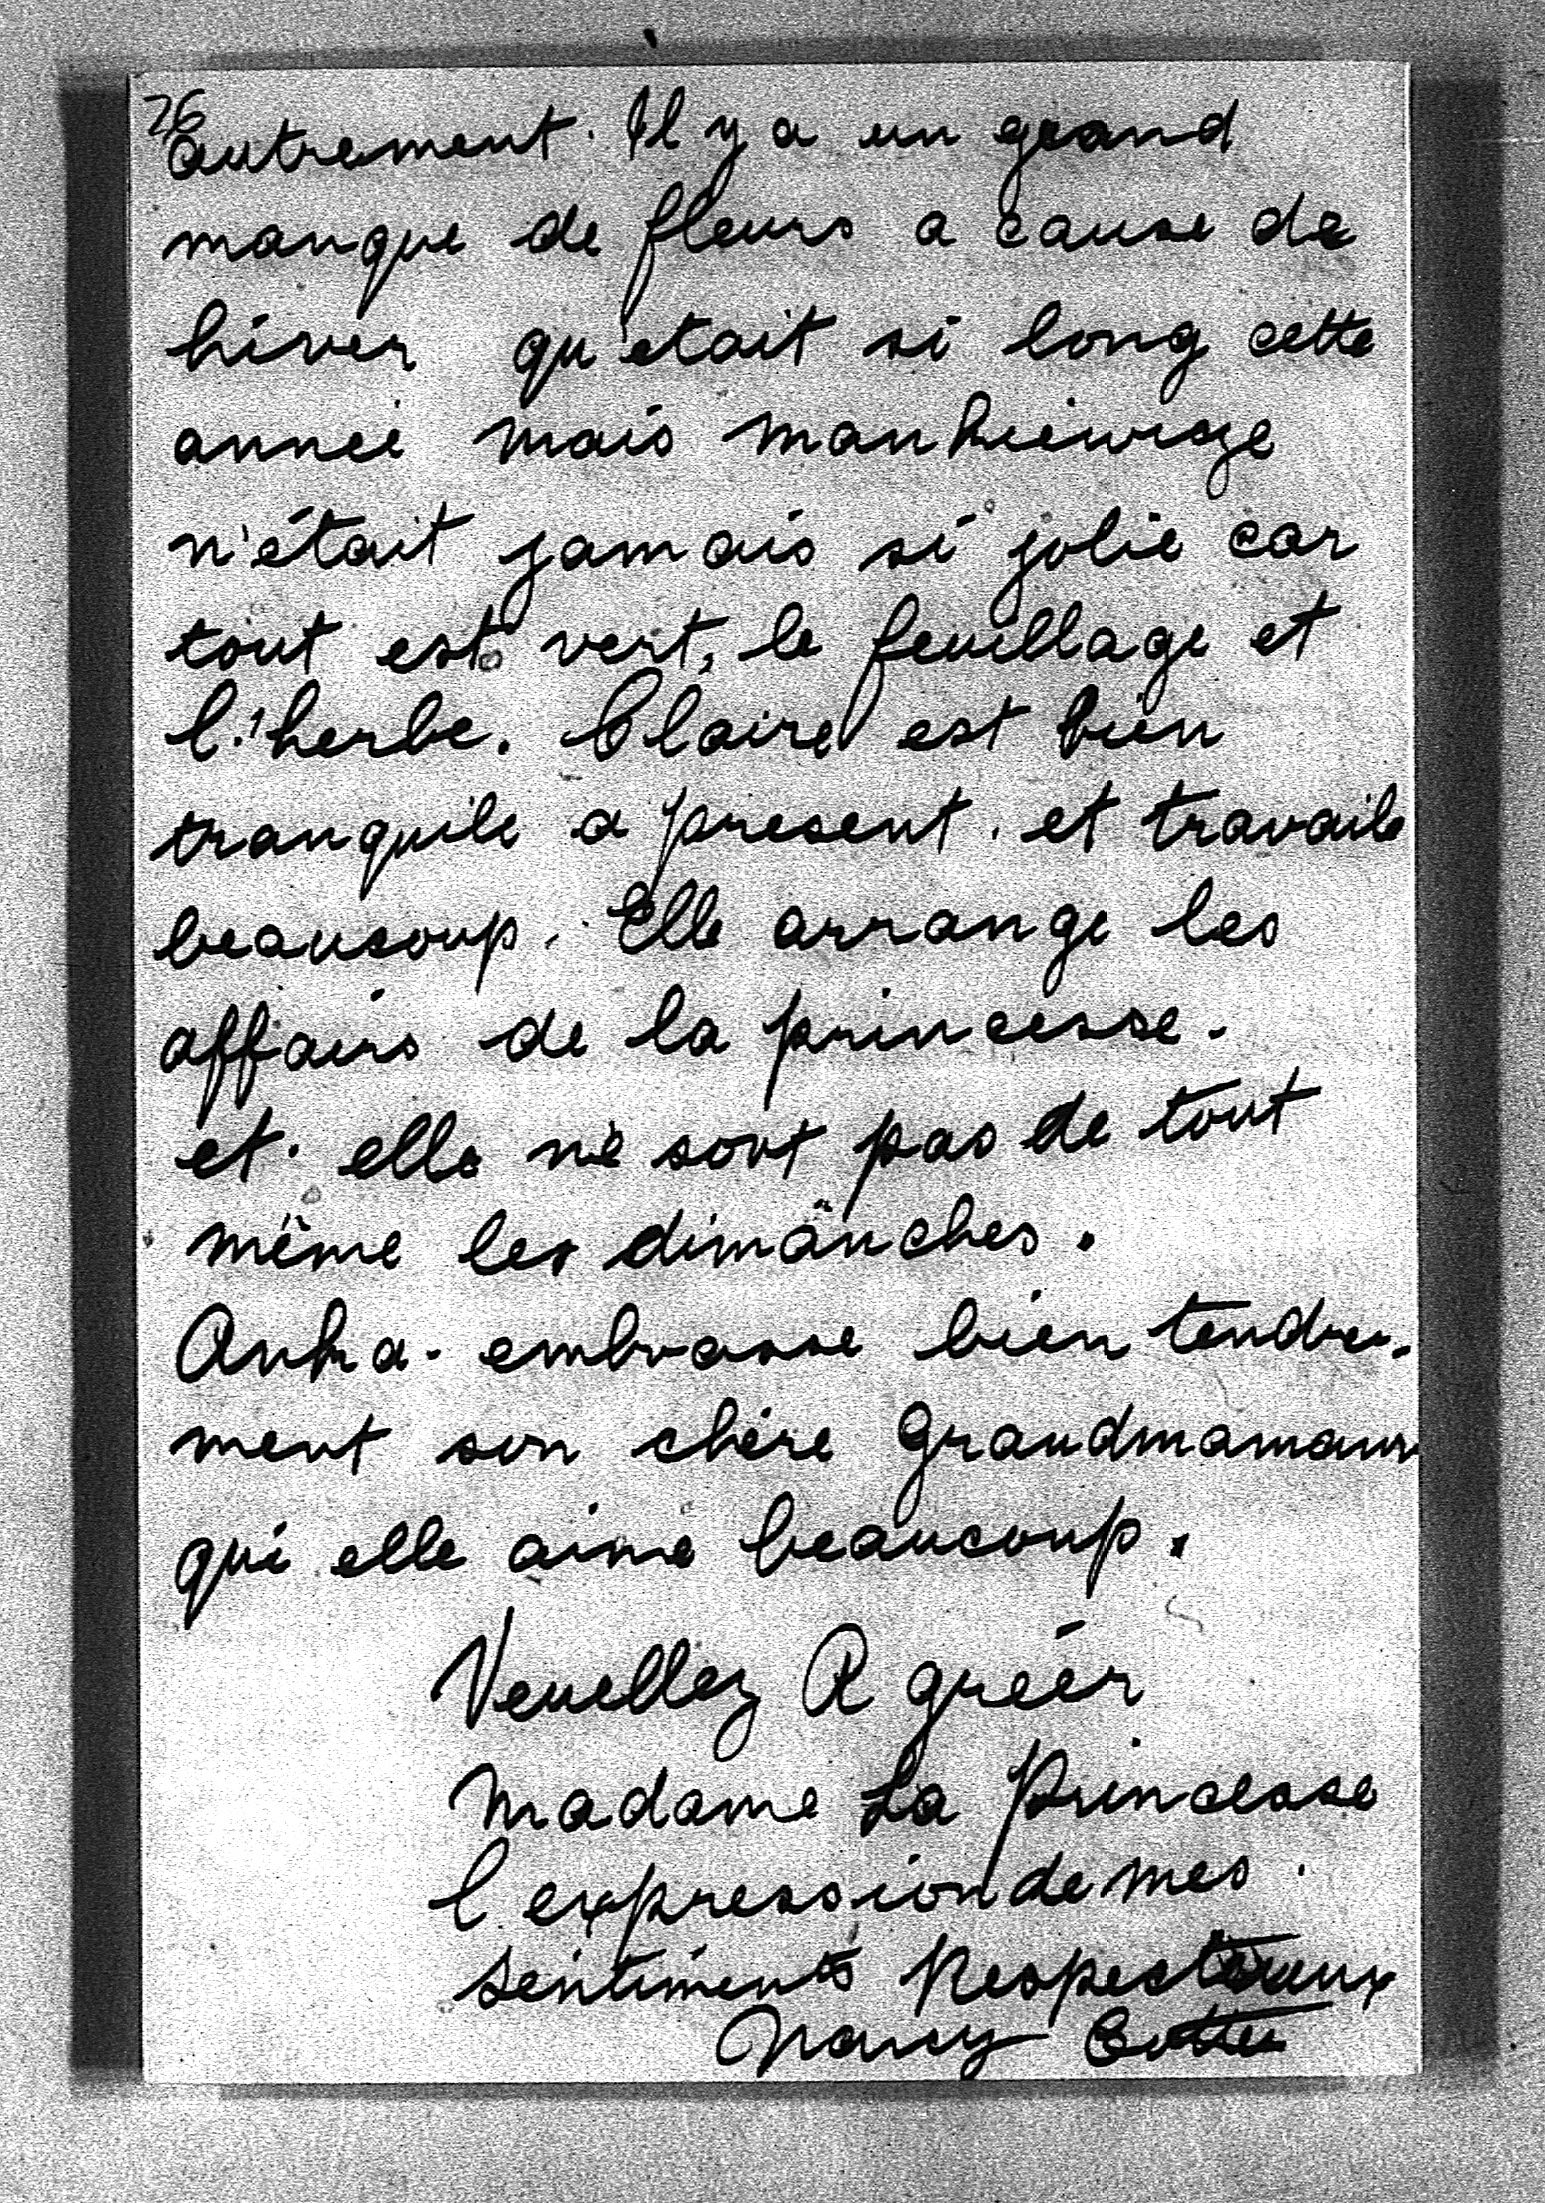 26
autrement. Il y a un grand
manque de fleurs a cause de
hiver qu'etait si long cette
anneé mais Mankiewicze
n'était jamais si jolie car
tout est vert, le feuillage et
l'herbe. Claire est bien
tranquile a present. et travaile
beaucoup. Elle arrange les
affairs de la princesse.
et. elle ne sort pas de tout
même les dimanches.
Anka. embrasse bien tendre-
ment son chère Grandmamam
qui elle aime beaucoup.
Veuellez Agreér
Madame La Princesse
l'expression de mes
sentiments Respectueux
Nancy